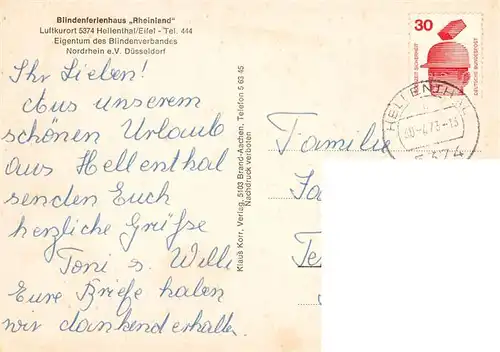 Blindenferienhaus „Rheinland"
Luftkurort 5374 Hellenthal/Eifel - Tel. 444
Eigentum des Blindenverbandes
Nordrhein e.V. Düsseldorf
Ihr Lieben!
Aus unserem
schönen Urlaub
aus Hellenthal
senden Euch
herzliche Grüße
Toni u. Willi
Eure Briefe haben
wir dankend erhalten.
Klaus Korr, Verlag, 5103 Brand-Aachen, Telefon 5 63 45
Nachdruck verboten
30
DEUTSCHE BUNDESPOST
HELLENTHAL
5374
Familie